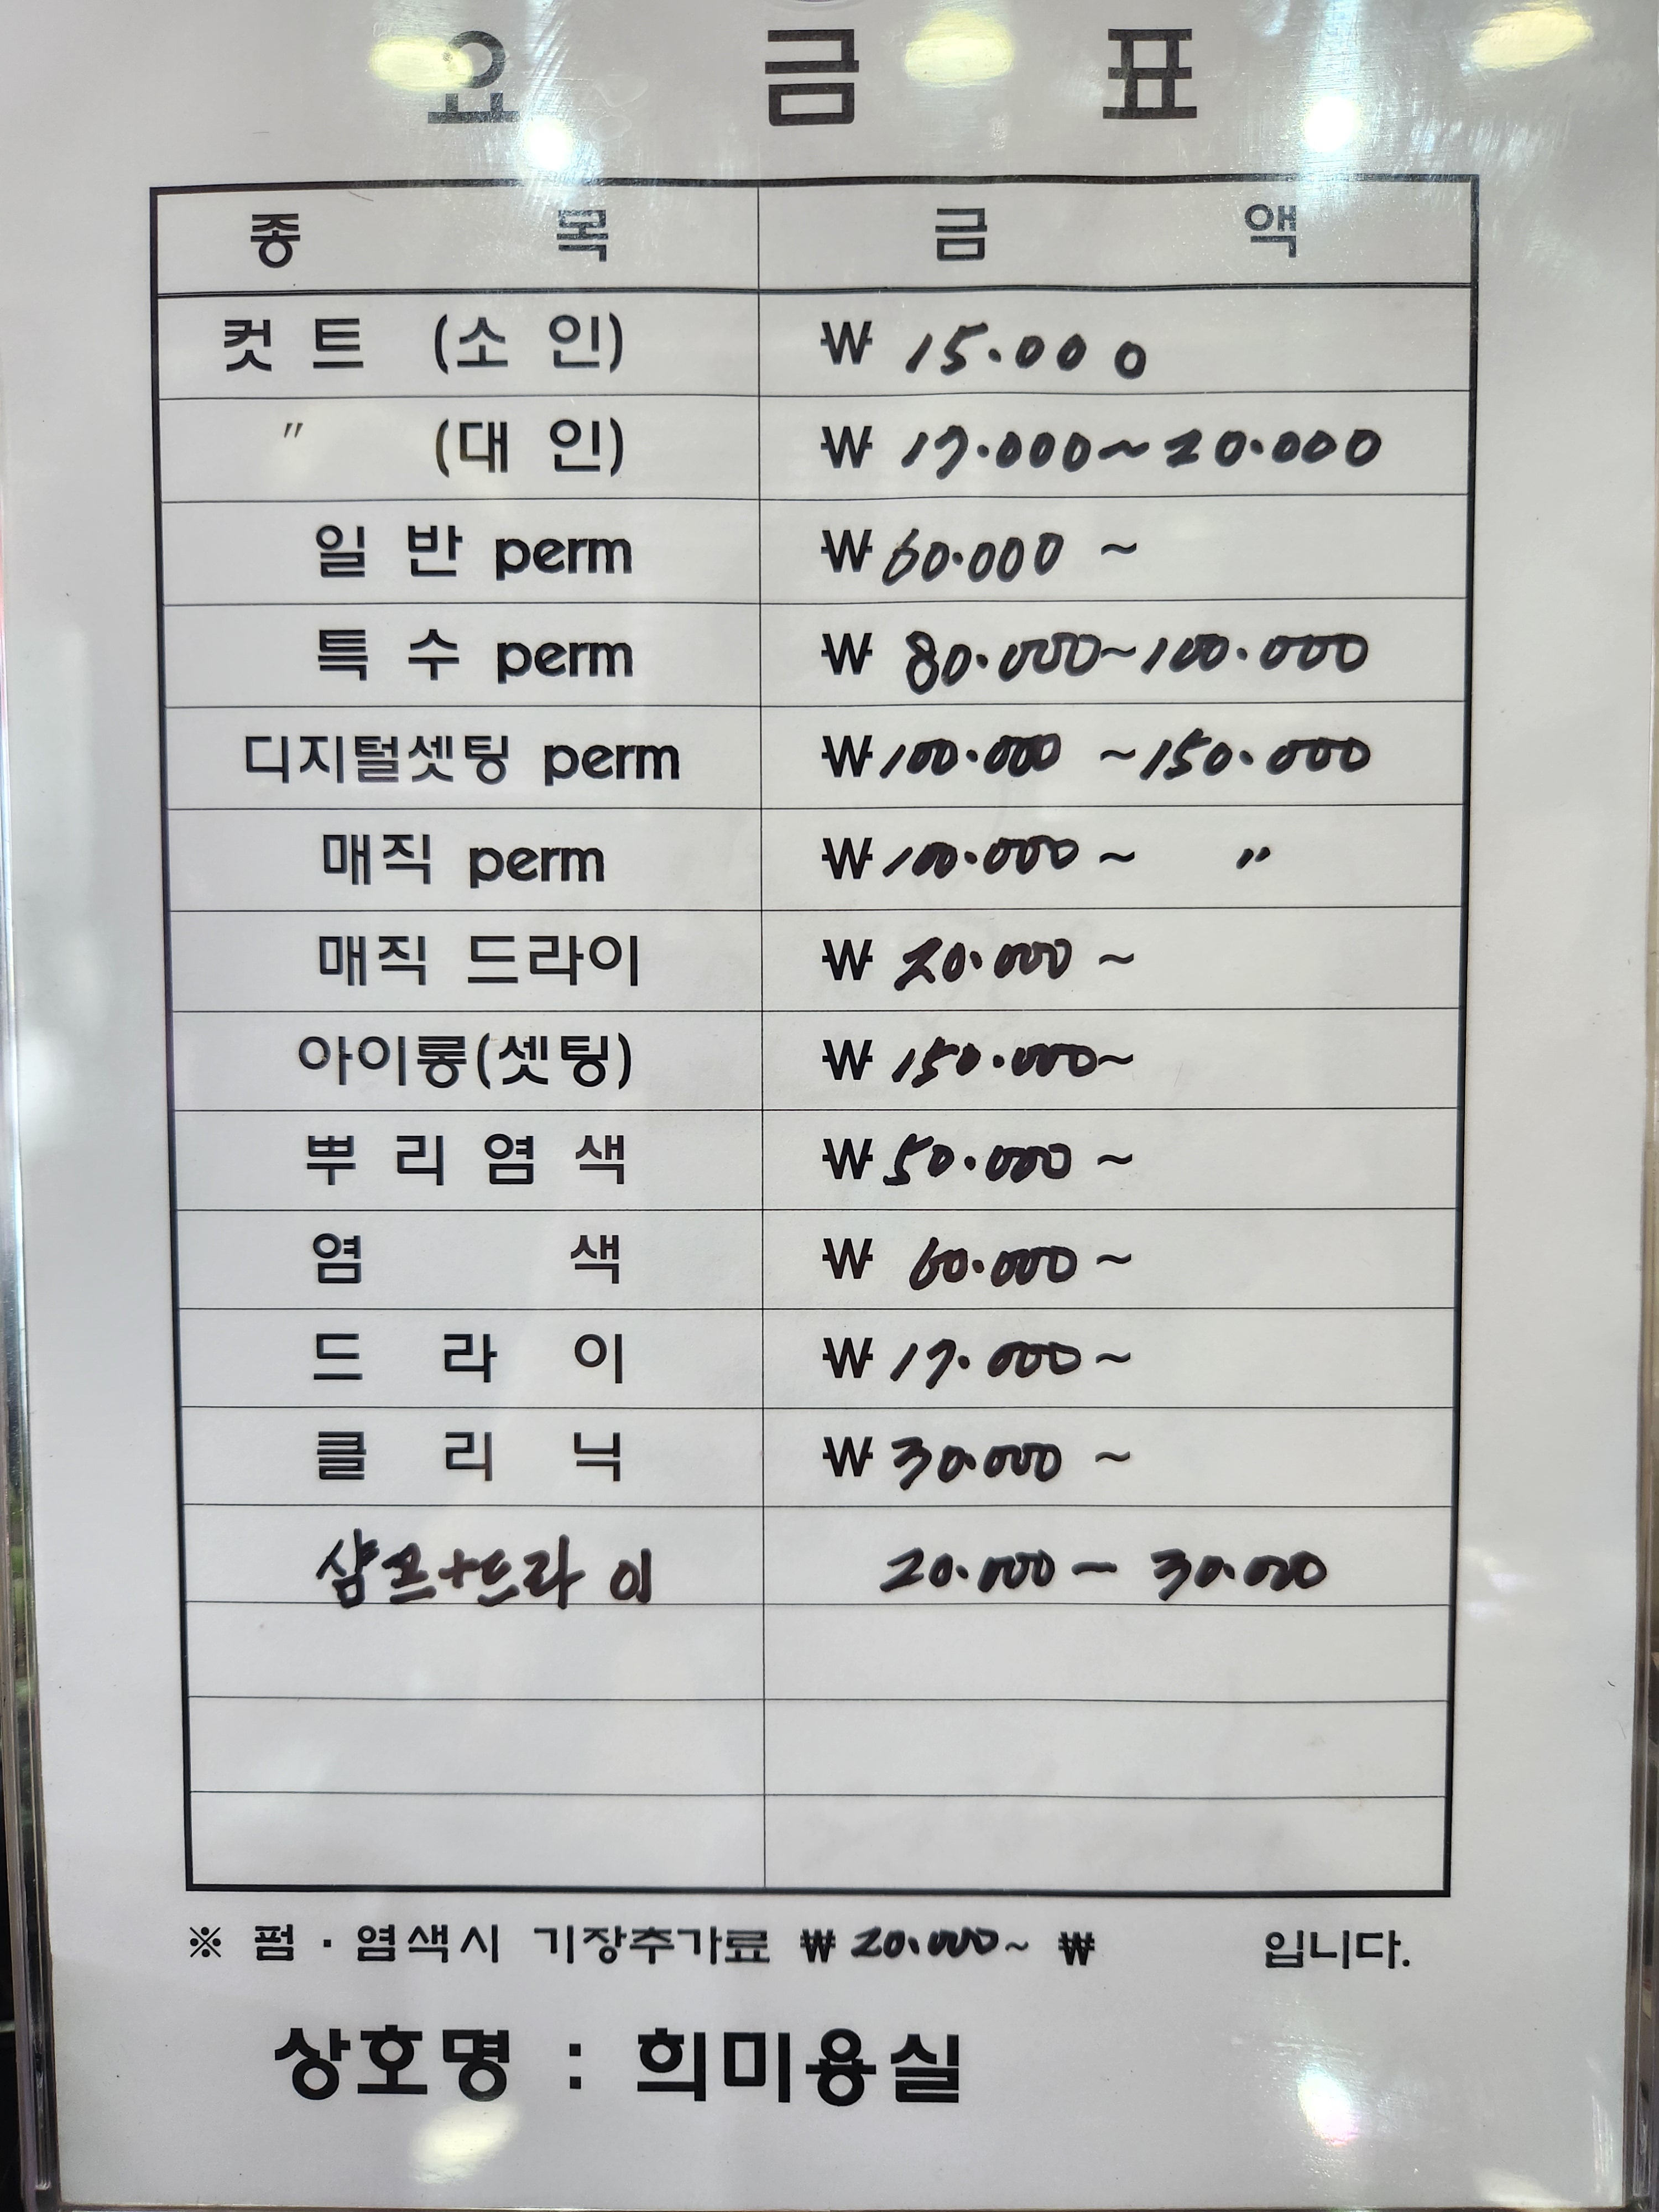 요 금 표
종 목 금 액
컷 트 (소 인) ₩ 15.000
〃 (대 인) ₩ 17.000~20.000
일 반 perm ₩ 60.000 ~
특 수 perm ₩ 80.000~100.000
디지털셋팅 perm ₩ 100.000 ~150.000
매직 perm ₩ 100.000 ~ 〃
매직 드라이 ₩ 20.000 ~
아이롱(셋팅) ₩ 150.000~
뿌 리 염 색 ₩ 50.000 ~
염 색 ₩ 60.000 ~
드 라 이 ₩ 17.000 ~
클 리 닉 ₩ 30.000 ~
샴프+드라이 20.000 ~ 30.000
※ 펌 · 염색시 기장추가료 ₩ 20.000~ ₩ 입니다.
상호명 : 희미용실